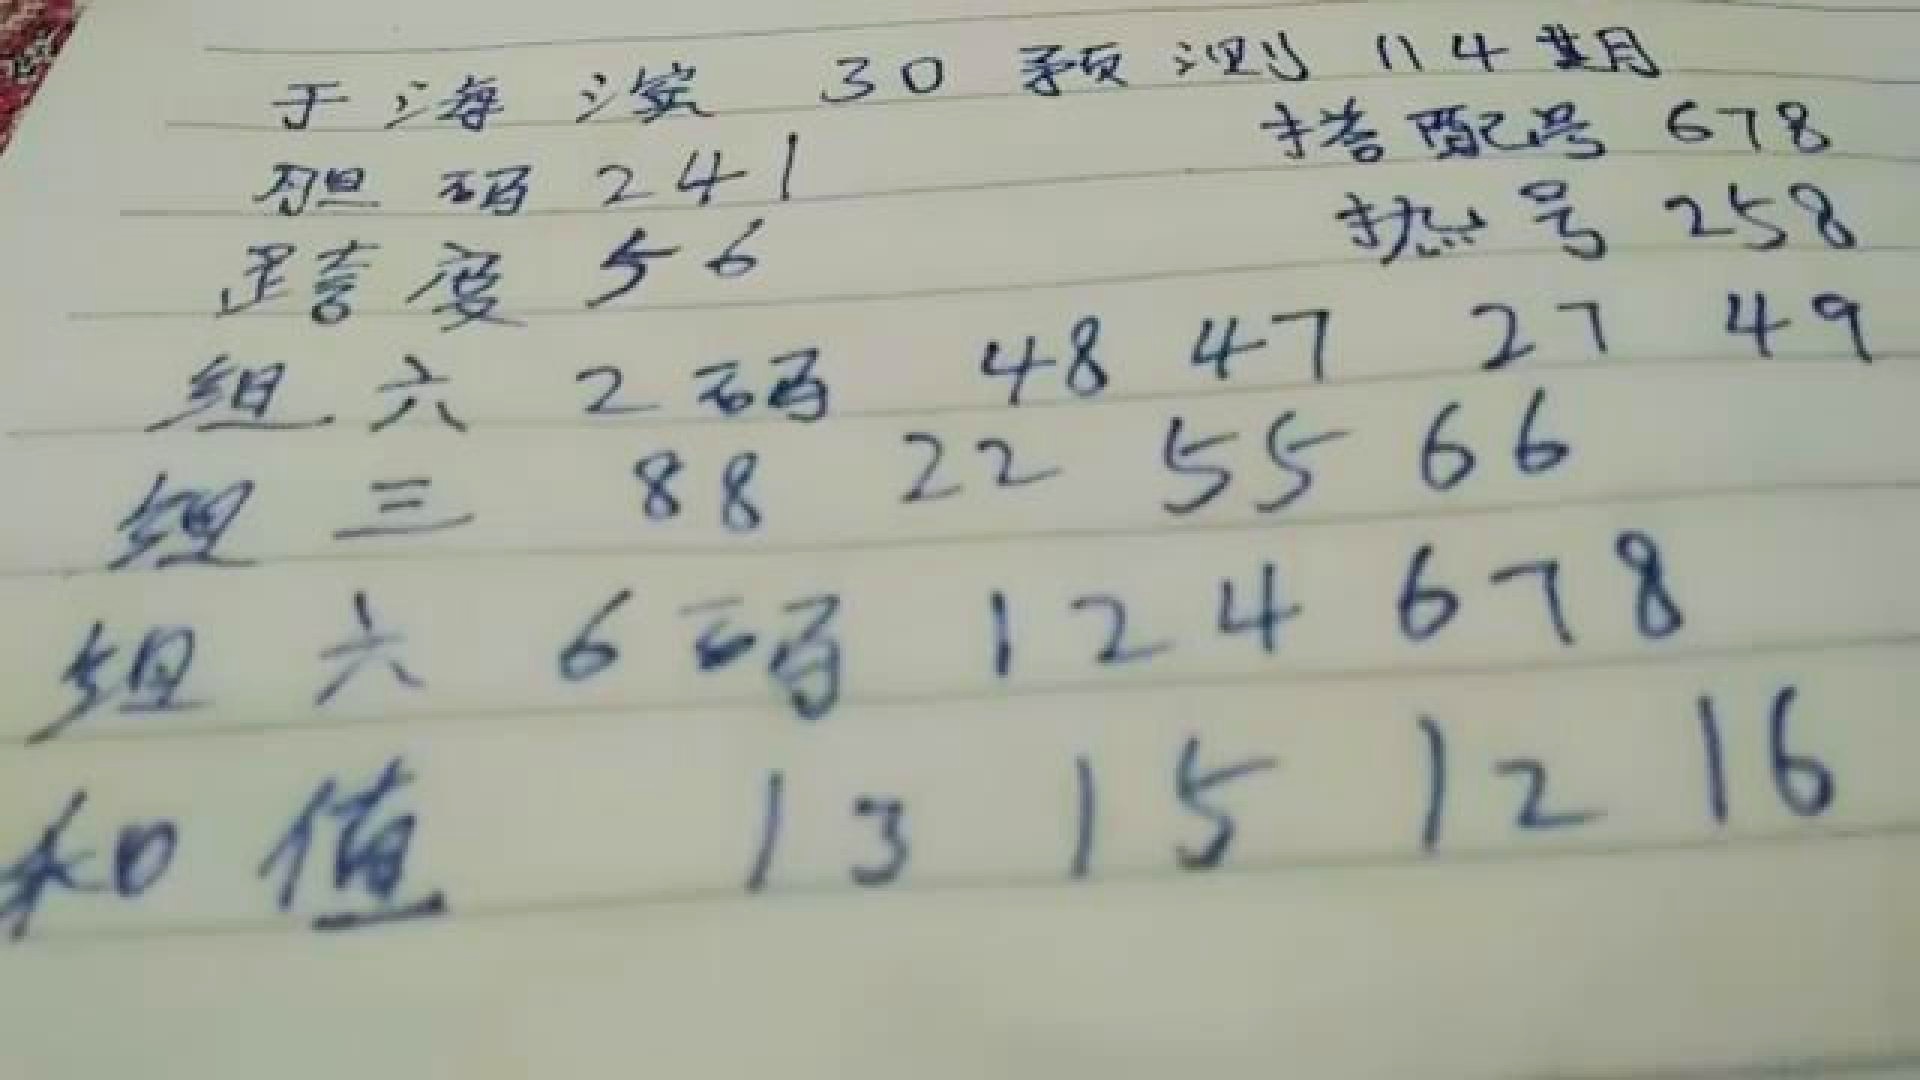 于海滨 30 预测 114期
胆码 241 搭配号 678
跨度 56 热号 258
组六 2码 48 47 27 49
组三 88 22 55 66
组六 6码 1 2 4 6 7 8
和值 13 15 12 16